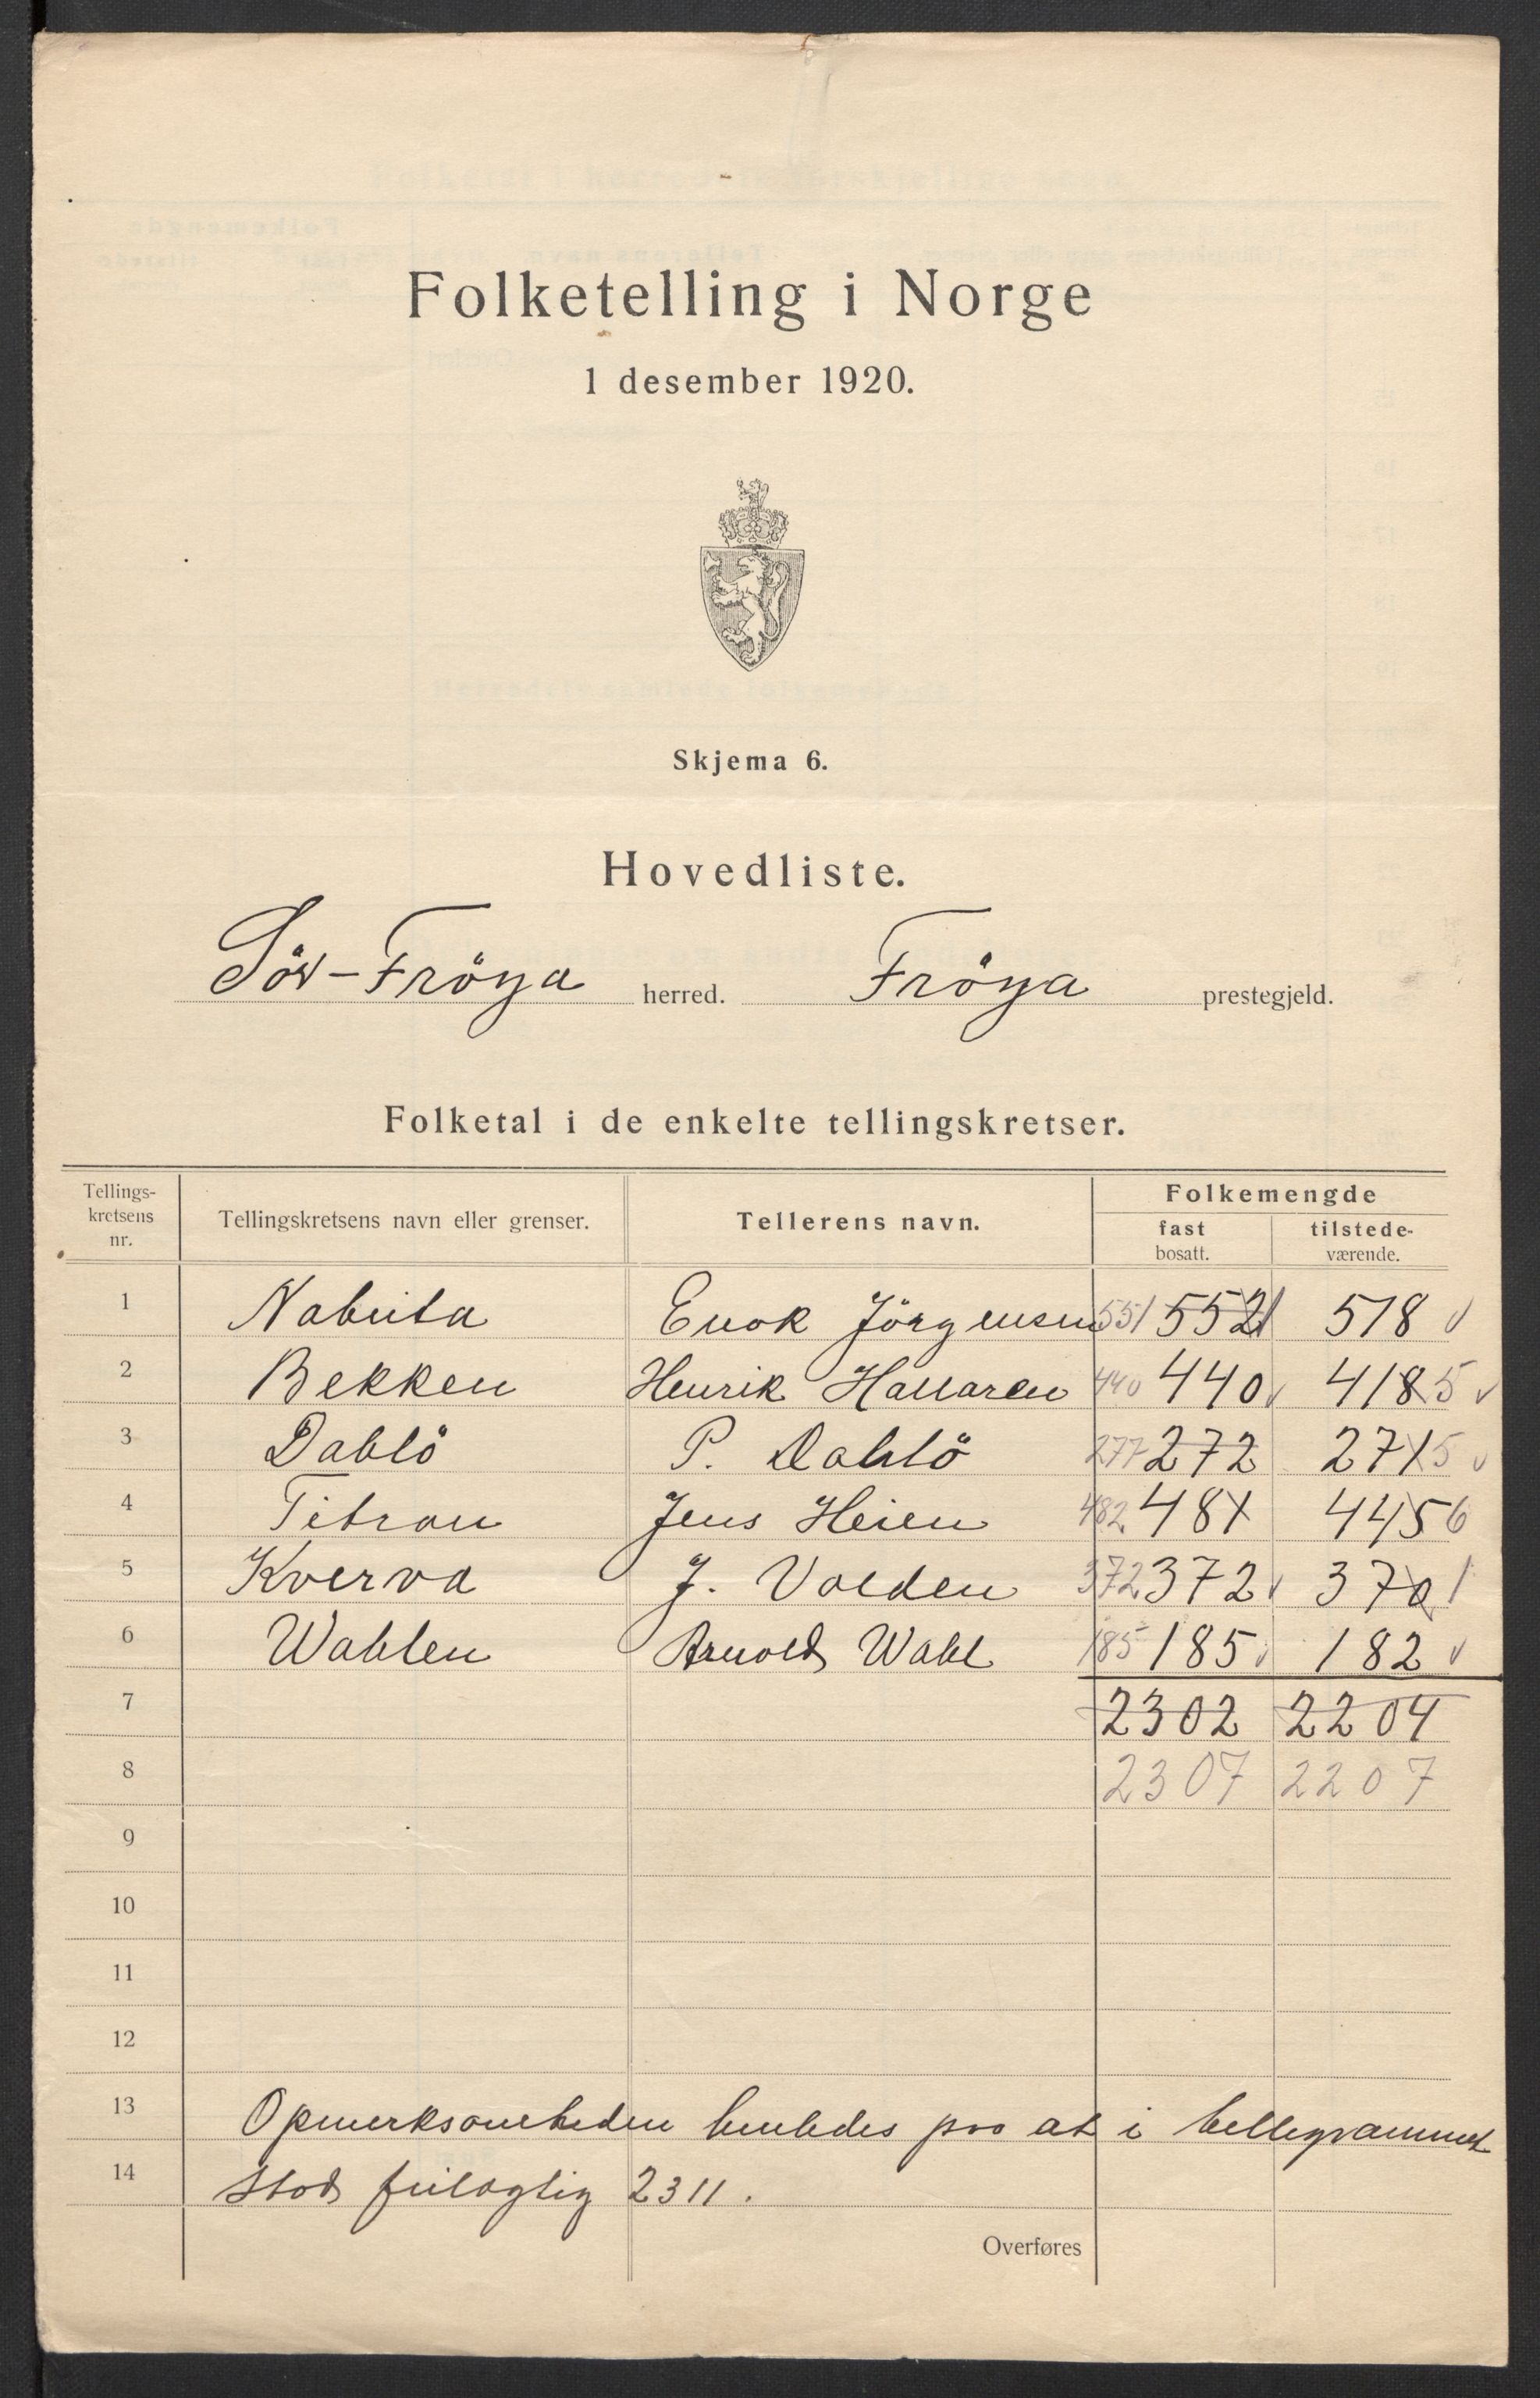 Folketelling i Norge
1 desember 1920.
Skjema 6.
Hovedliste.
Sör-Fröya herred. Fröya prestegjeld.
Folketal i de enkelte tellingskretser.
Tellings-kretsens nr. Tellingskretsens navn eller grenser. Tellerens navn. Folkemengde
fast bosatt. tilstede-værende.
1 Nabeita Enok Jörgensen 551 552 1 518 ✓
2 Bekken Henrik Hallaren 440 440 ✓ 418 5 ✓
3 Dahlö P. Dahlö 277 272 271 5 ✓
4 Titran Jens Heien 482 481 445 6
5 Kverva J. Volden 372 372 ✓ 370 1
6 Wahlen Arnold Wahl 185 185 ✓ 182 ✓
7 2302 2204
8 2307 2207
9
10
11
12
13 Opmerksomheden henledes paa at i tellegrammet
14 stod feilagtig 2311.
Overføres